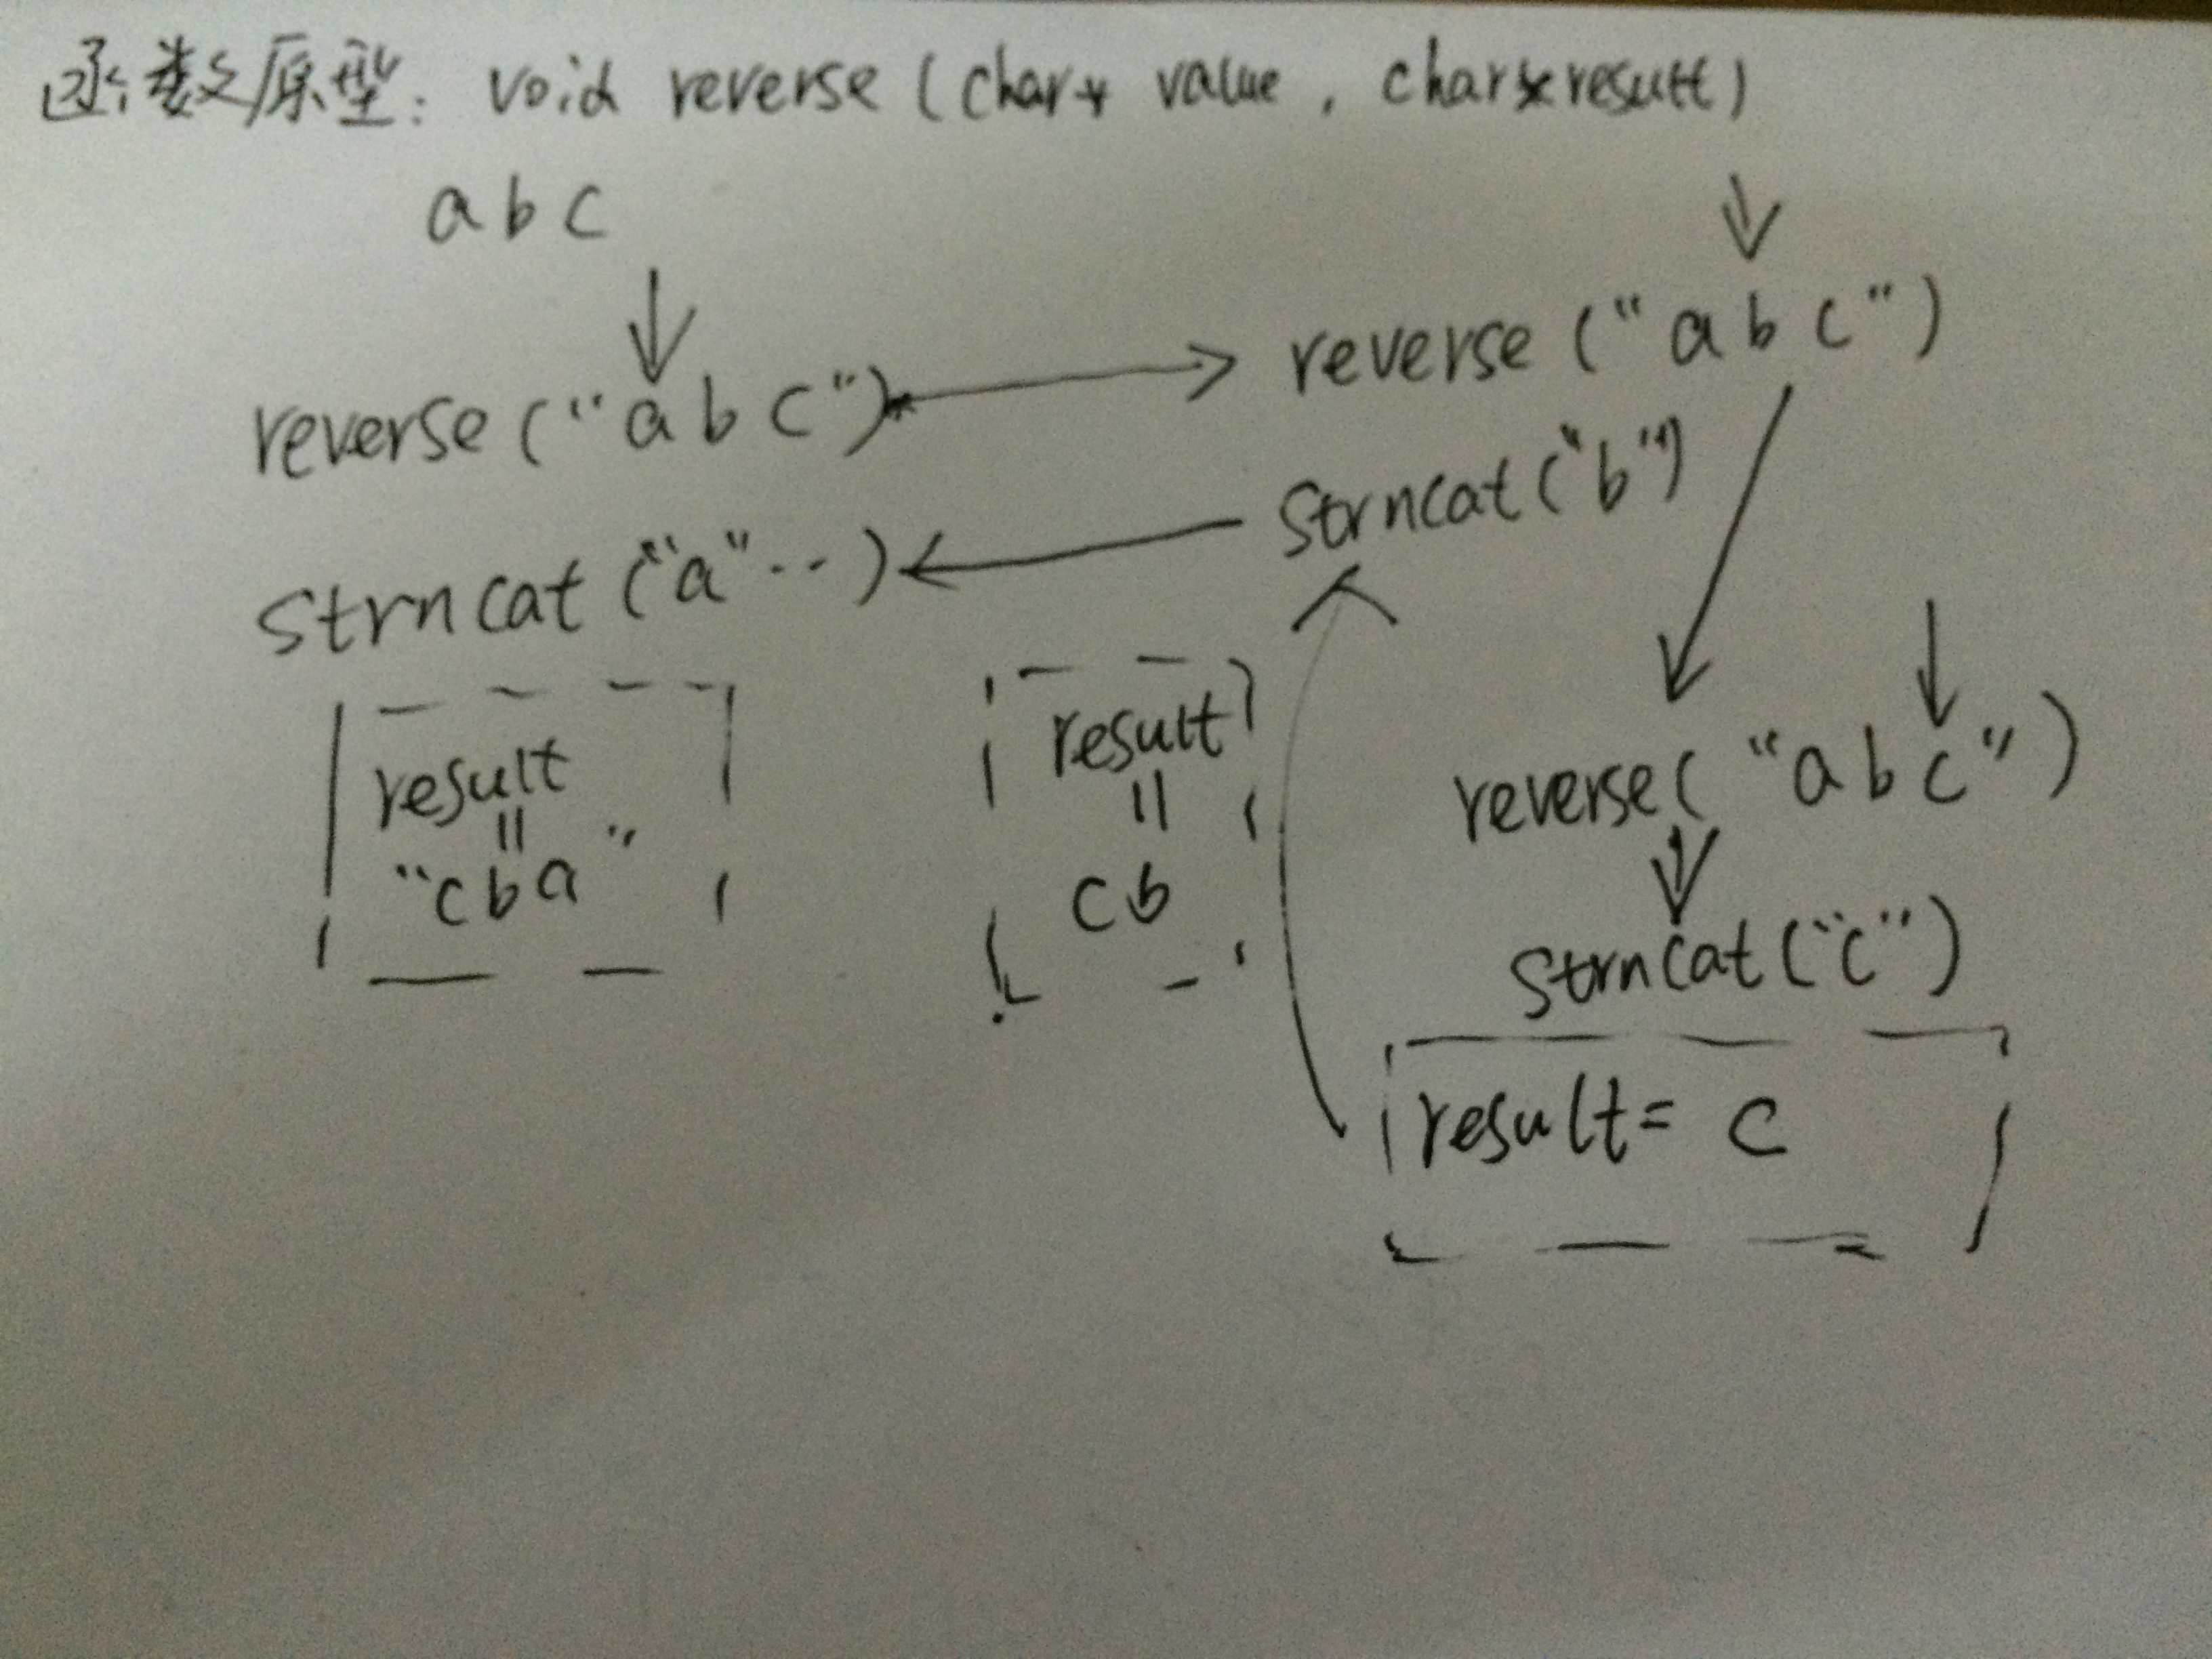 函数原型: void reverse (char* value , char*result)
abc
reverse ("abc")
reverse ("abc")
strncat("b")
strncat ("a"··)
result
=
"cba"
result
=
cb
reverse( "abc")
strncat("c")
result= c